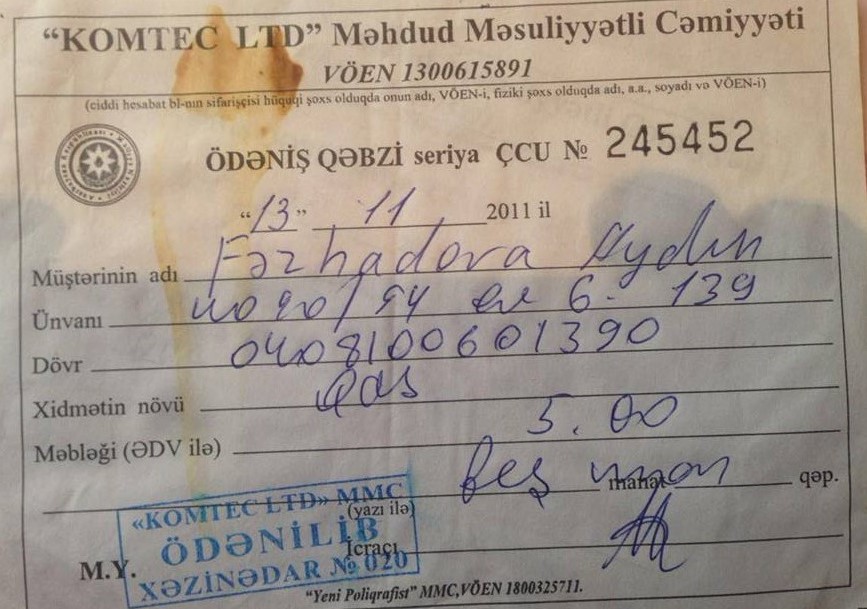 “KOMTEC LTD” Məhdud Məsuliyyətli Cəmiyyəti
VÖEN 1300615891
(ciddi hesabat bl-nın sifarişçisi hüquqi şəxs olduqda onun adı, VÖEN-i, fiziki şəxs olduqda adı, a.a., soyadı və VÖEN-i)
ÖDƏNİŞ QƏBZİ seriya ÇCU № 245452
“13” 11 2011 il
Müştərinin adı Fərhadova Aydın
Ünvanı ev 6- 139
Dövr 0408100601390
Xidmətin növü qaz
Məbləği (ƏDV ilə) 5.00
beş manat qəp.
(yazı ilə)
«KOMTEC LTD» MMC
ÖDƏNİLİB
XƏZİNƏDAR № 020
İcraçı
M.Y.
“Yeni Poliqrafist” MMC,VÖEN 1800325711.